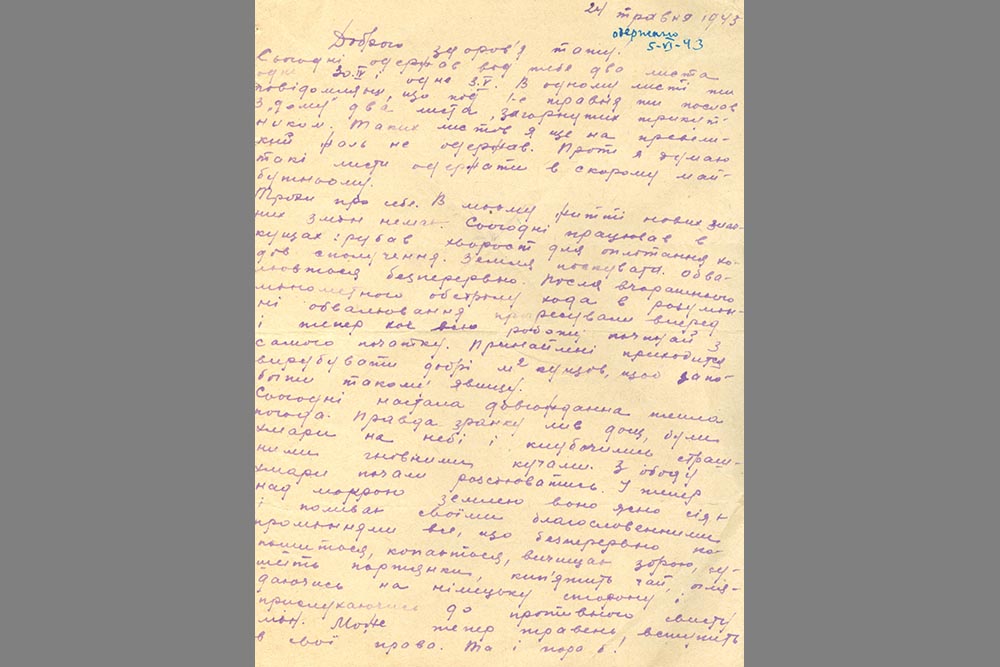 24 травня 1943
одержано
5-VI-43
Доброго здоров'я тату!
Сьогодні одержав від тебе два листа
одне 30.IV і одне 3.V. В одному листі ти
повідомляєш, що під 1-е травня ти послав
з "дому" два листа, загорнутих трикут-
ником. Таких листів я ще на превели-
кий жаль не одержав. Проте я думаю
такі листи одержати в скорому май-
бутньому.
Трохи про себе. В моєму житті нових
них змін немає. Сьогодні працював в
кущах: рубав хворост для оплотання хо-
дів сполучення. Земля піскувата. Обва-
люється безперервно. Після вчорашнього
мінометного обстрілу хода в розумін-
ні обвалювання прогресували вперед
і тепер всю роботу починай з
самого початку. Принаймні приходится
вирубувати добрі м² кущів, щоб запо-
бігти такому явищу.
Сьогодні настала довгожданна тепла
погода. Правда зранку лив дощ, були
хмари на небі і клубочились страш-
ними гнівними кучами. З обіду
хмари почали розсіюватись. І тепер
над мокрою землею воно ясно сія
і поливає своїми благословенними
проміннями все, що безперервно
копається, вичищає зброю, су-
шить портянки, кип'ятить чай, огля-
даючись на німецьку сторону і
прислухаючись до противного свисту
мін. Може тепер травень вступить
в свої права. Та і пора б!